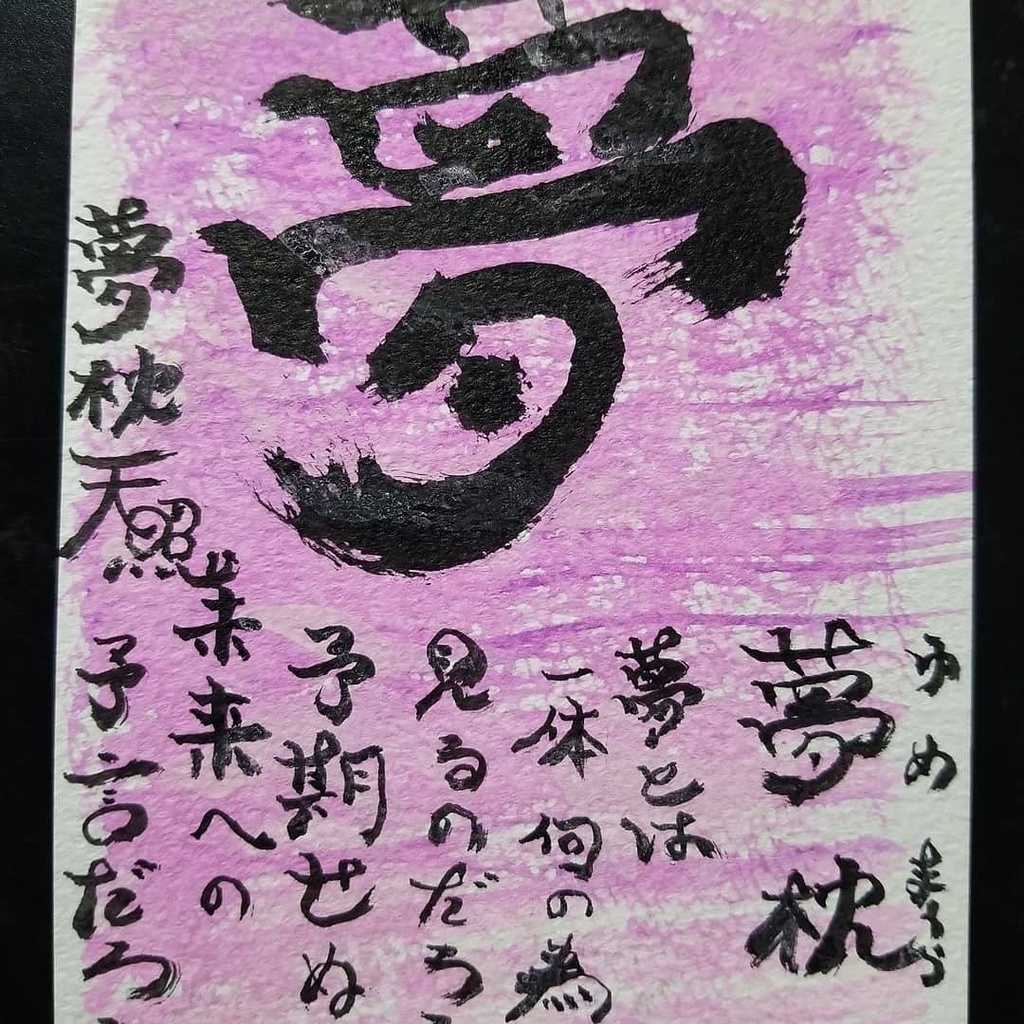 夢
ゆめ まくら
夢 枕
夢とは
一体 何の為
見るのだろ
予期せぬ
未来への
予言だろ
夢枕天照